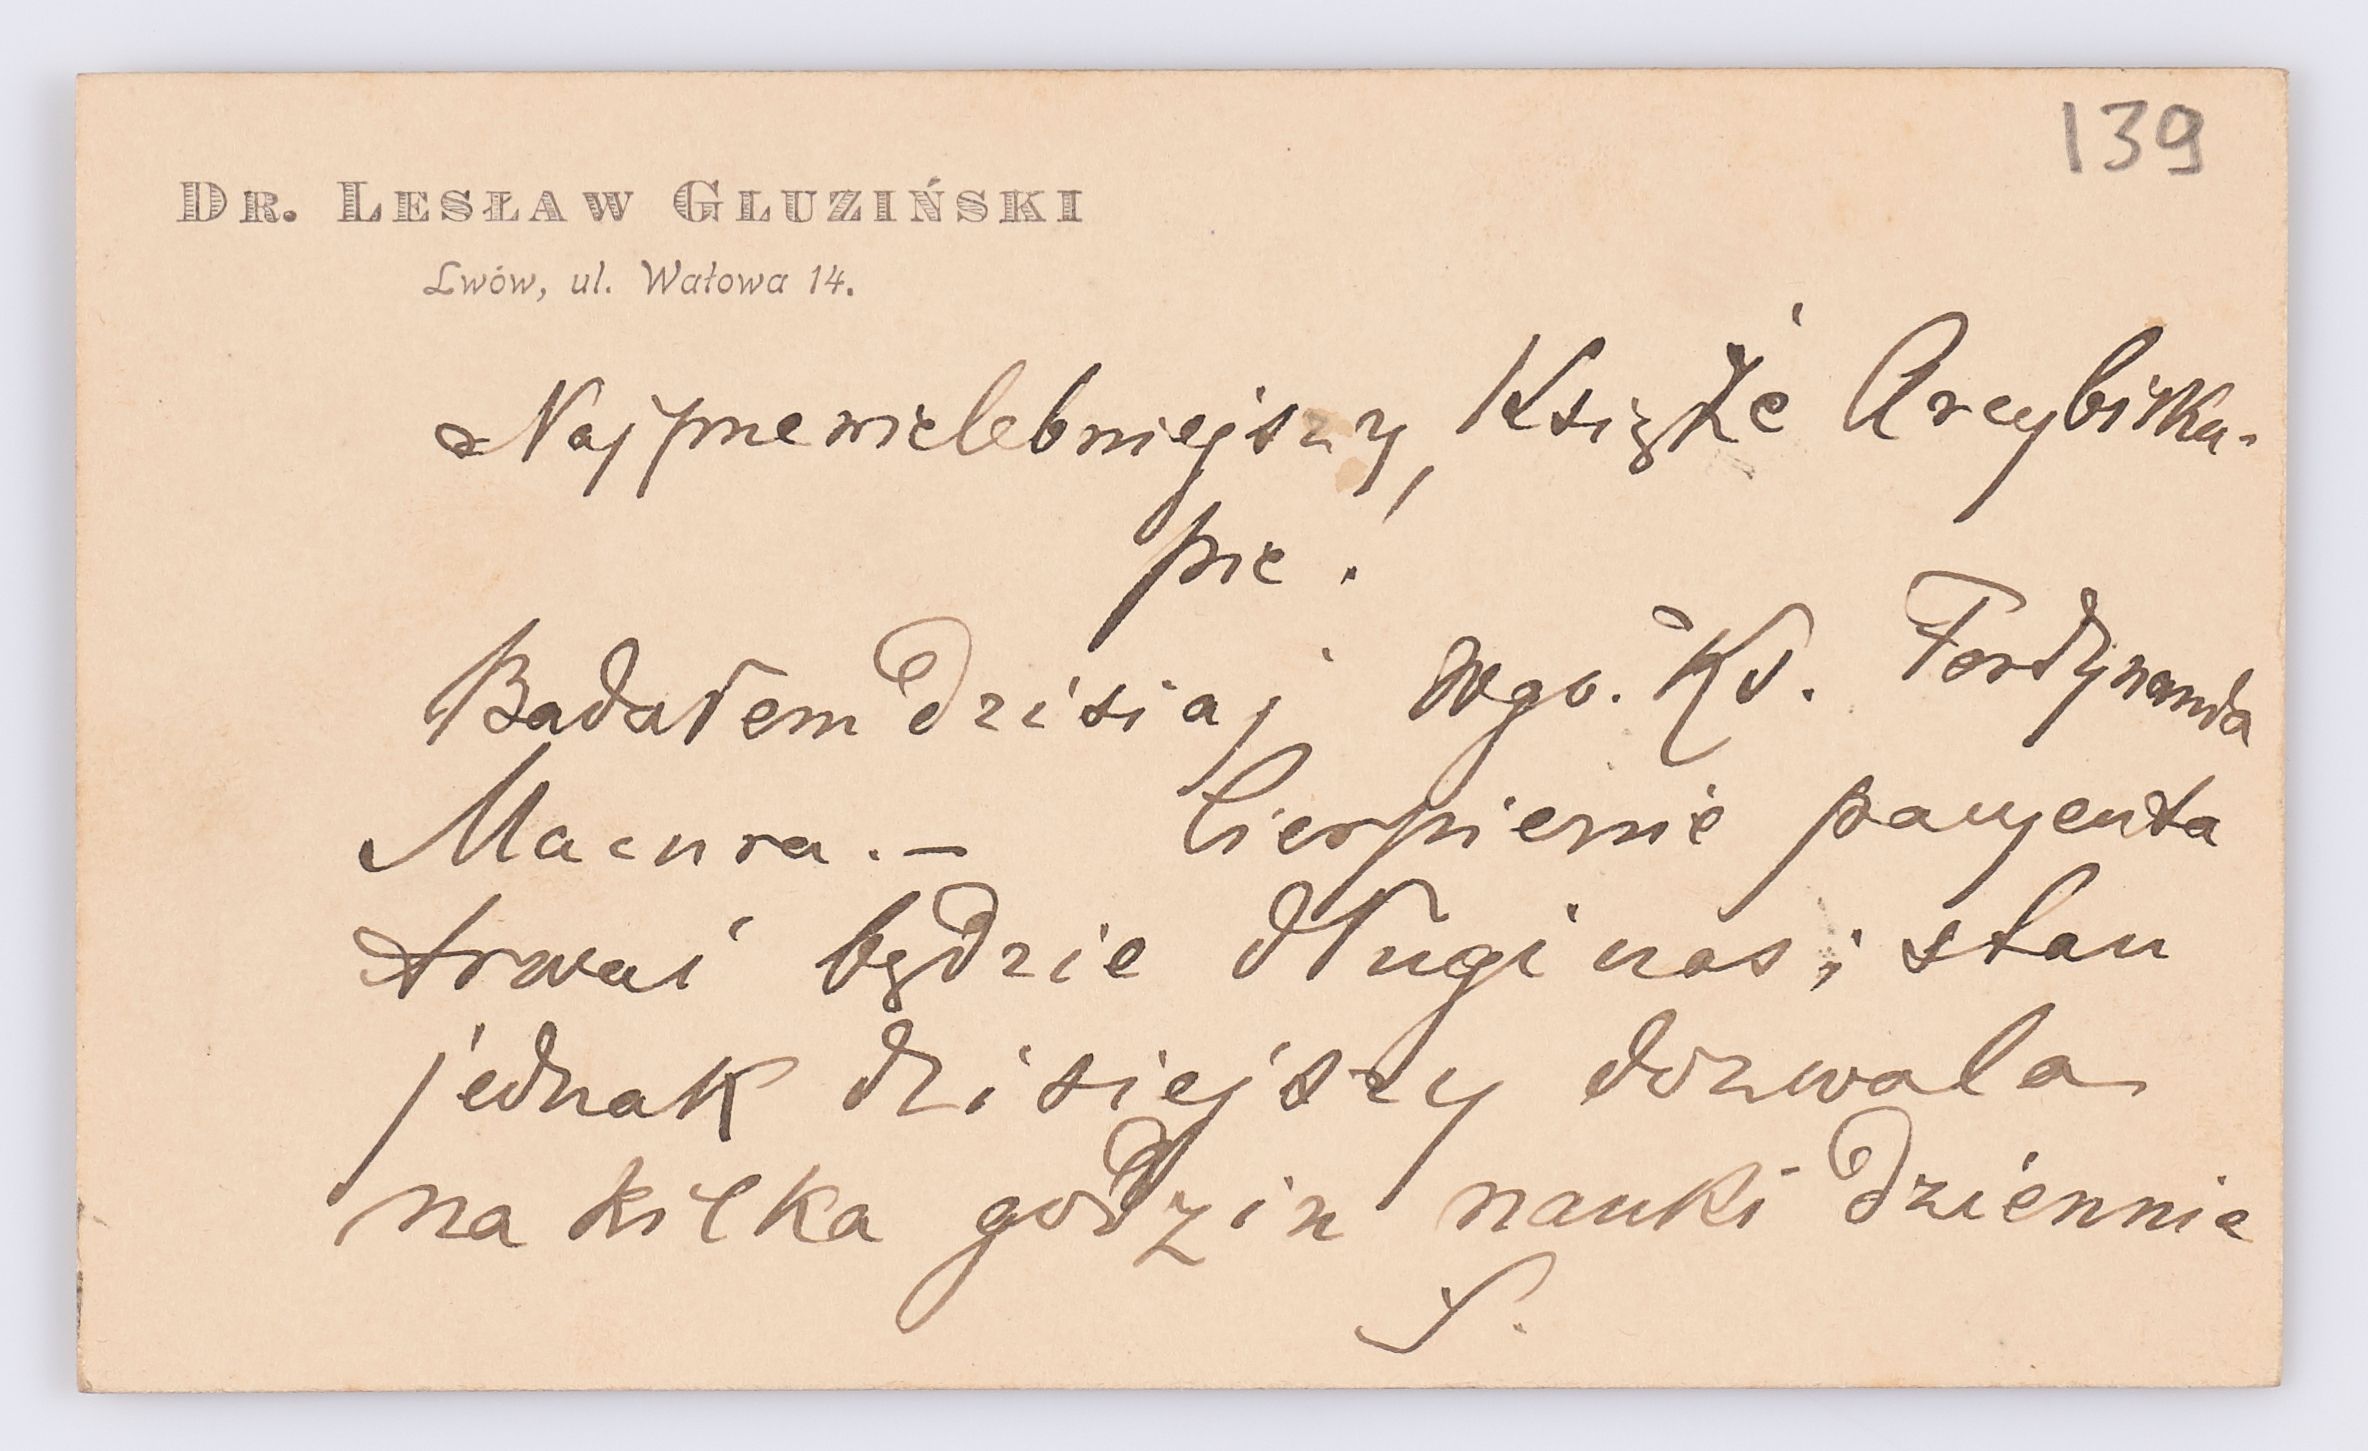 139
DR. LESŁAW GLUZIŃSKI
Lwów, ul. Wałowa 14.
Najprzewielebniejszy, Książe Arcybisku-
pie!
Badałem dzisiaj Wgo. Ks. Ferdynanda
Macura. — Cierpienie pacyenta
trwać będzie długi czas; stan
jednak dzisiejszy dozwala
na kilka godzin nauki dziennie